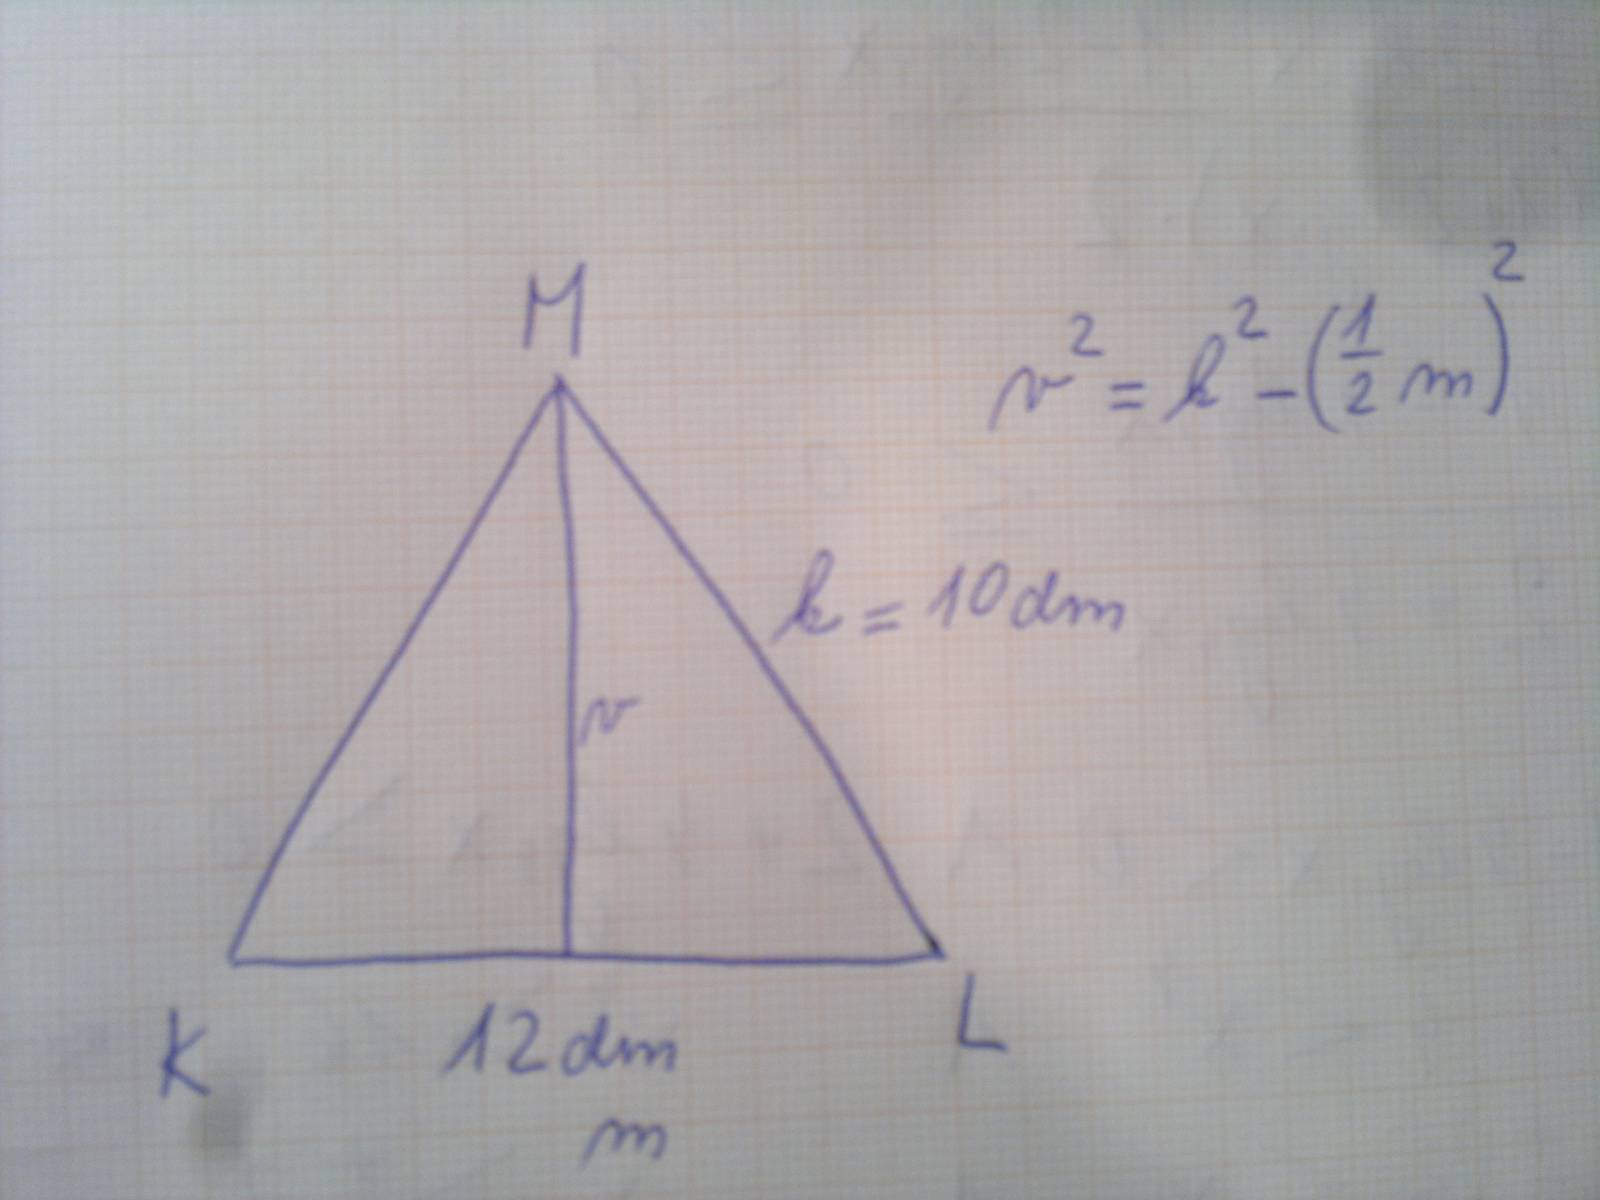 M
v² = k² - (1/2 m)²
k = 10 dm
v
K
12 dm
L
m